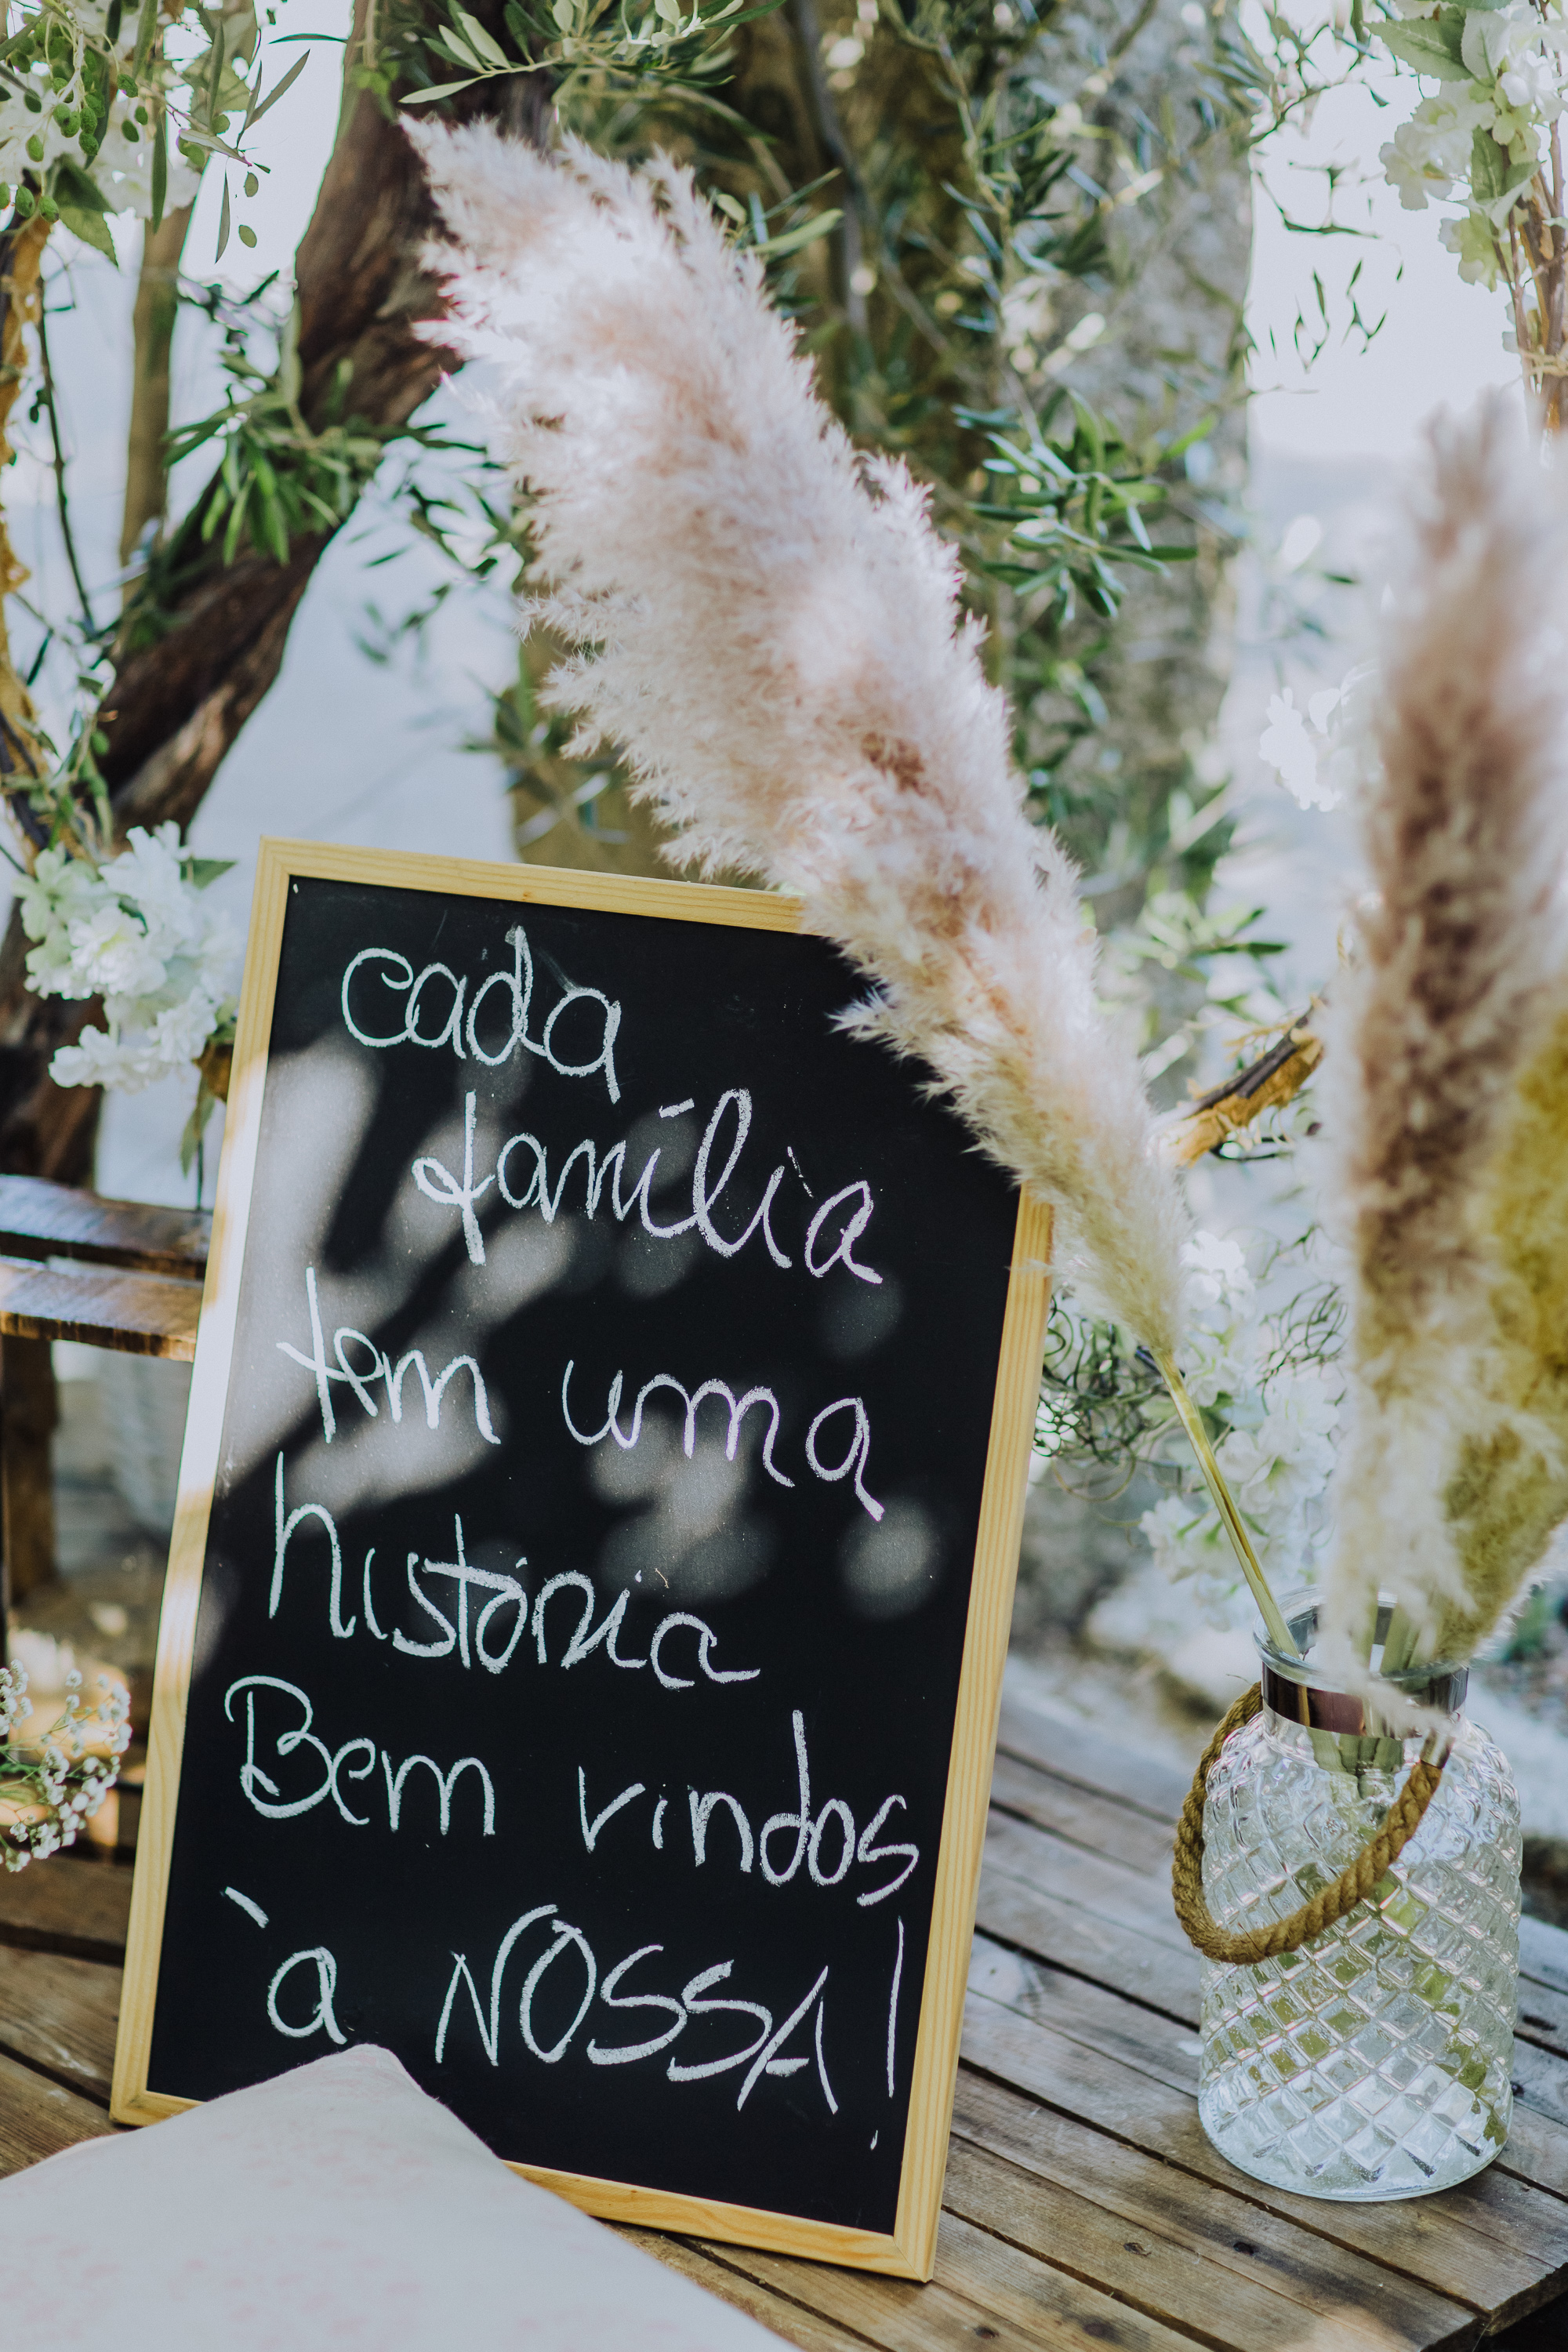 cada
família
tem uma
história
Bem vindos
à NOSSA!